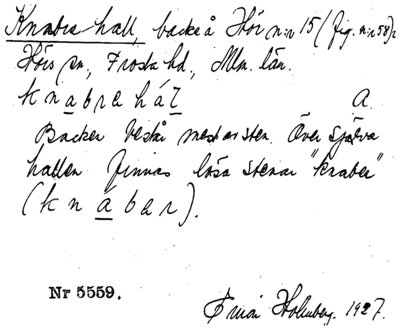 Knabra hall, backe å Hör n:r 15 (fig. n:r 58) i
Hörs sn, Frosta hd, Mlm. län.
knabrehál A.
Backen består mest av sten. Över själva
hallen finnas lösa stenar "knaber"
(knábar).
Nr 5559. Holmberg. 1927.